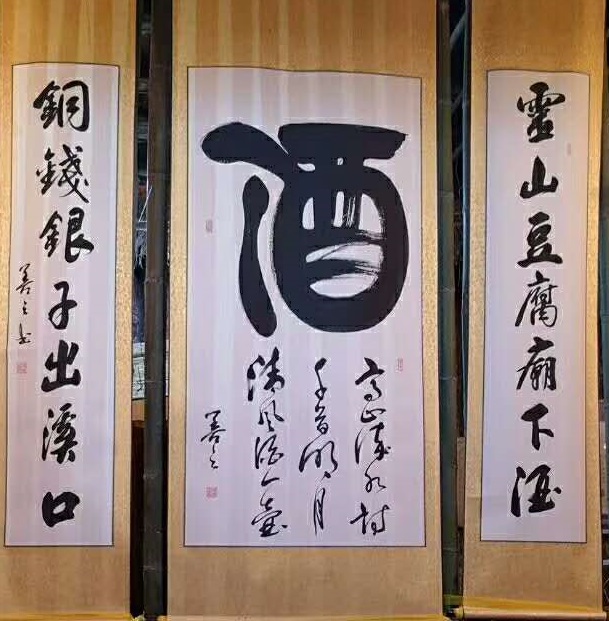 靈山豆腐廟下酒
酒
高山流水詩
千首明月
清風酒一壺
善之
銅錢銀子出溪口
善之書